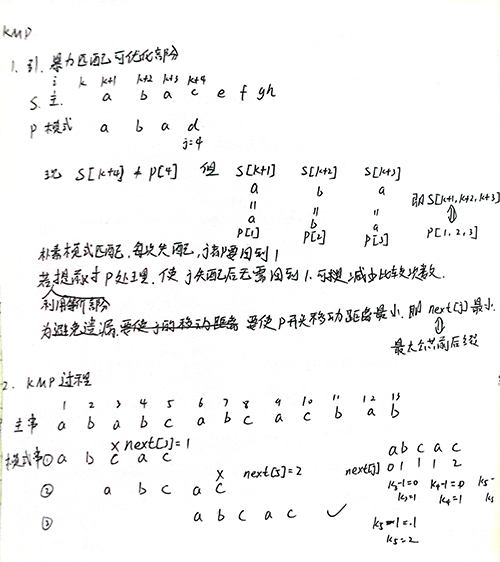 KMP
1. 引. 暴力匹配可优化部分
i k k+1 k+2 k+3 k+4
S. 主. a b a c e f gh
P 模式 a b a d
j=4
现 S[k+4] ≠ P[4] 但 S[k+1] S[k+2] S[k+3]
a b a 即 S[k+1,k+2,k+3]
= = =
a b a
P[1] P[2] P[3] P[1,2,3]
朴素模式匹配,每次失配,j都要回到1
若提前对P处理,使j失配后无需回到1.可减少比较次数.
利用部分
为避免遗漏,要使j的移动距离要使P移动距离最小.即next[j]最小.
最大公共前后缀
2. KMP过程
1 2 3 4 5 6 7 8 9 10 11 12 13
主串 a b a b c a b c a c b a b
模式串① a b c a c
X next[3]=1
② a b c a c
X next[5]=2
③ a b c a c ✓
a b c a c
next[j] 0 1 1 1 2
k3-1=0 k4-1=0 k5-
k3=1 k4=1 k5
k5-1=1
k5=2